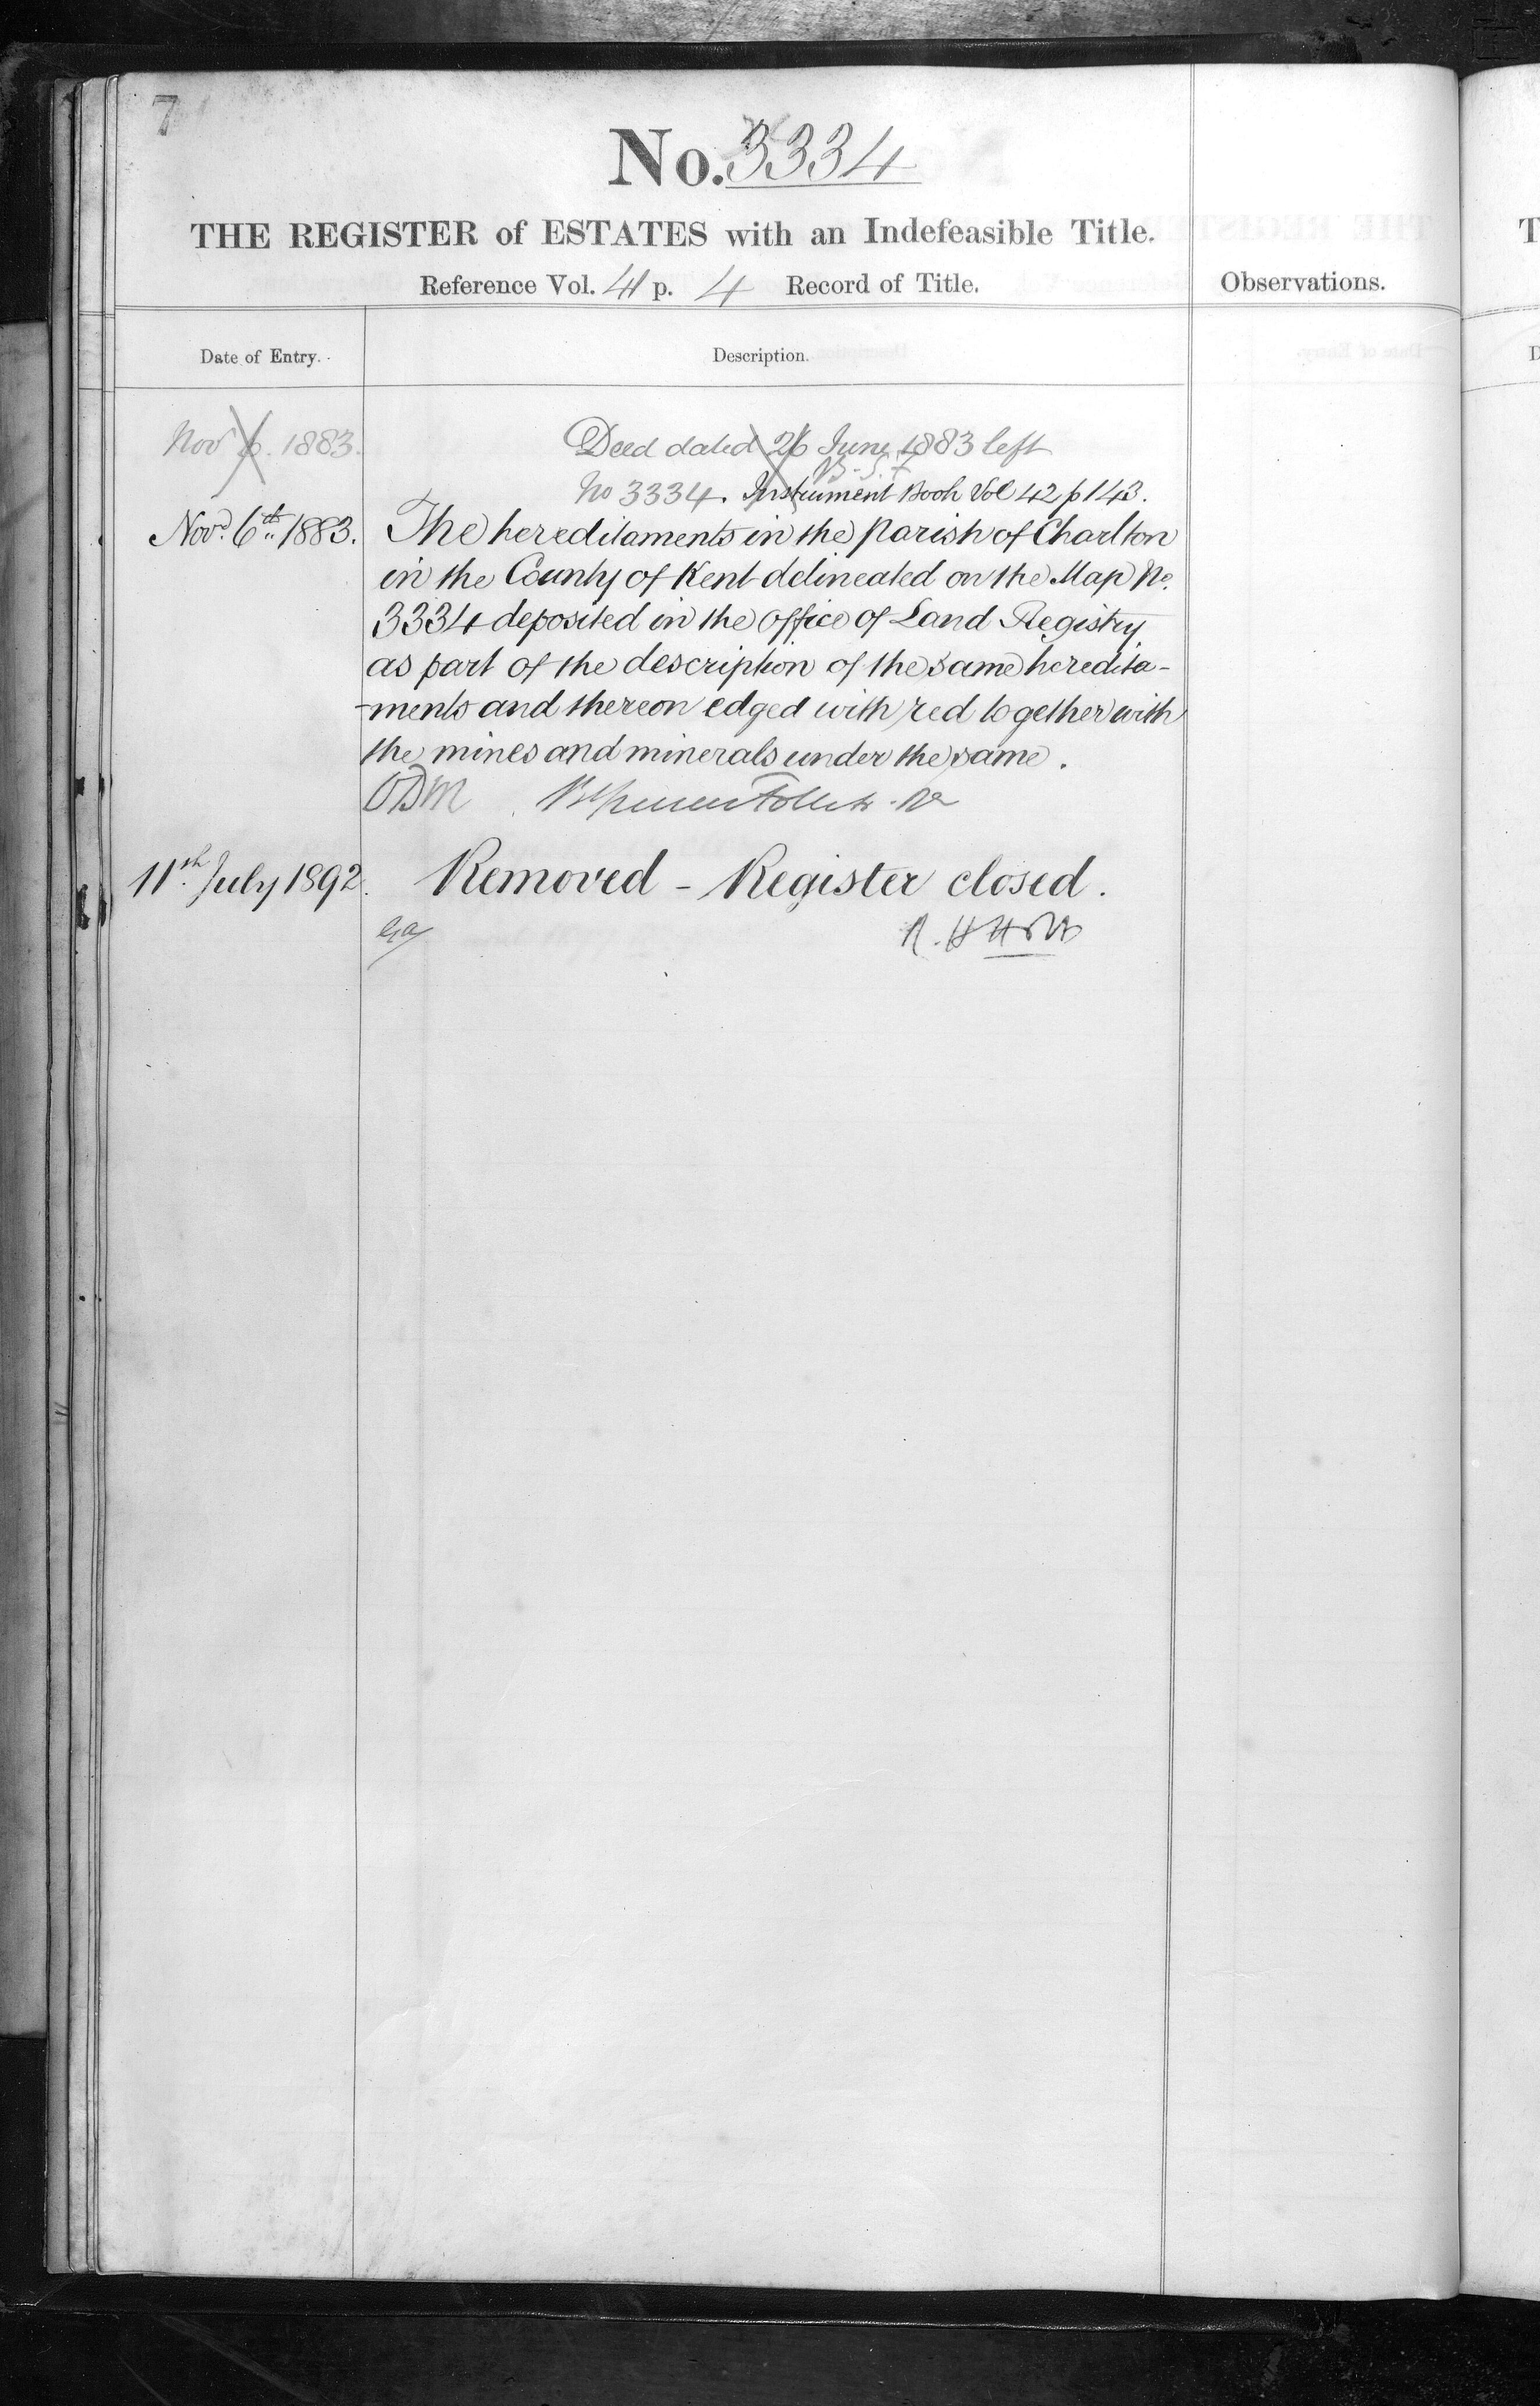 7
No. 3334
THE REGISTER of ESTATES with an Indefeasible Title.
Reference Vol. 41 p. 4 Record of Title.
Observations.
Date of Entry.
Description.
Nov 6. 1883. Deed dated 26 June 1883 left
No 3334. Instrument Book Vol 42 p 143.
Novr. 6th. 1883. The hereditaments in the Parish of Charlton
in the County of Kent delineated on the Map No.
3334 deposited in the office of Land Registry
as part of the description of the same heredita-
-ments and thereon edged with red together with
the mines and minerals under the same.
11th. July 1892. Removed - Register closed.